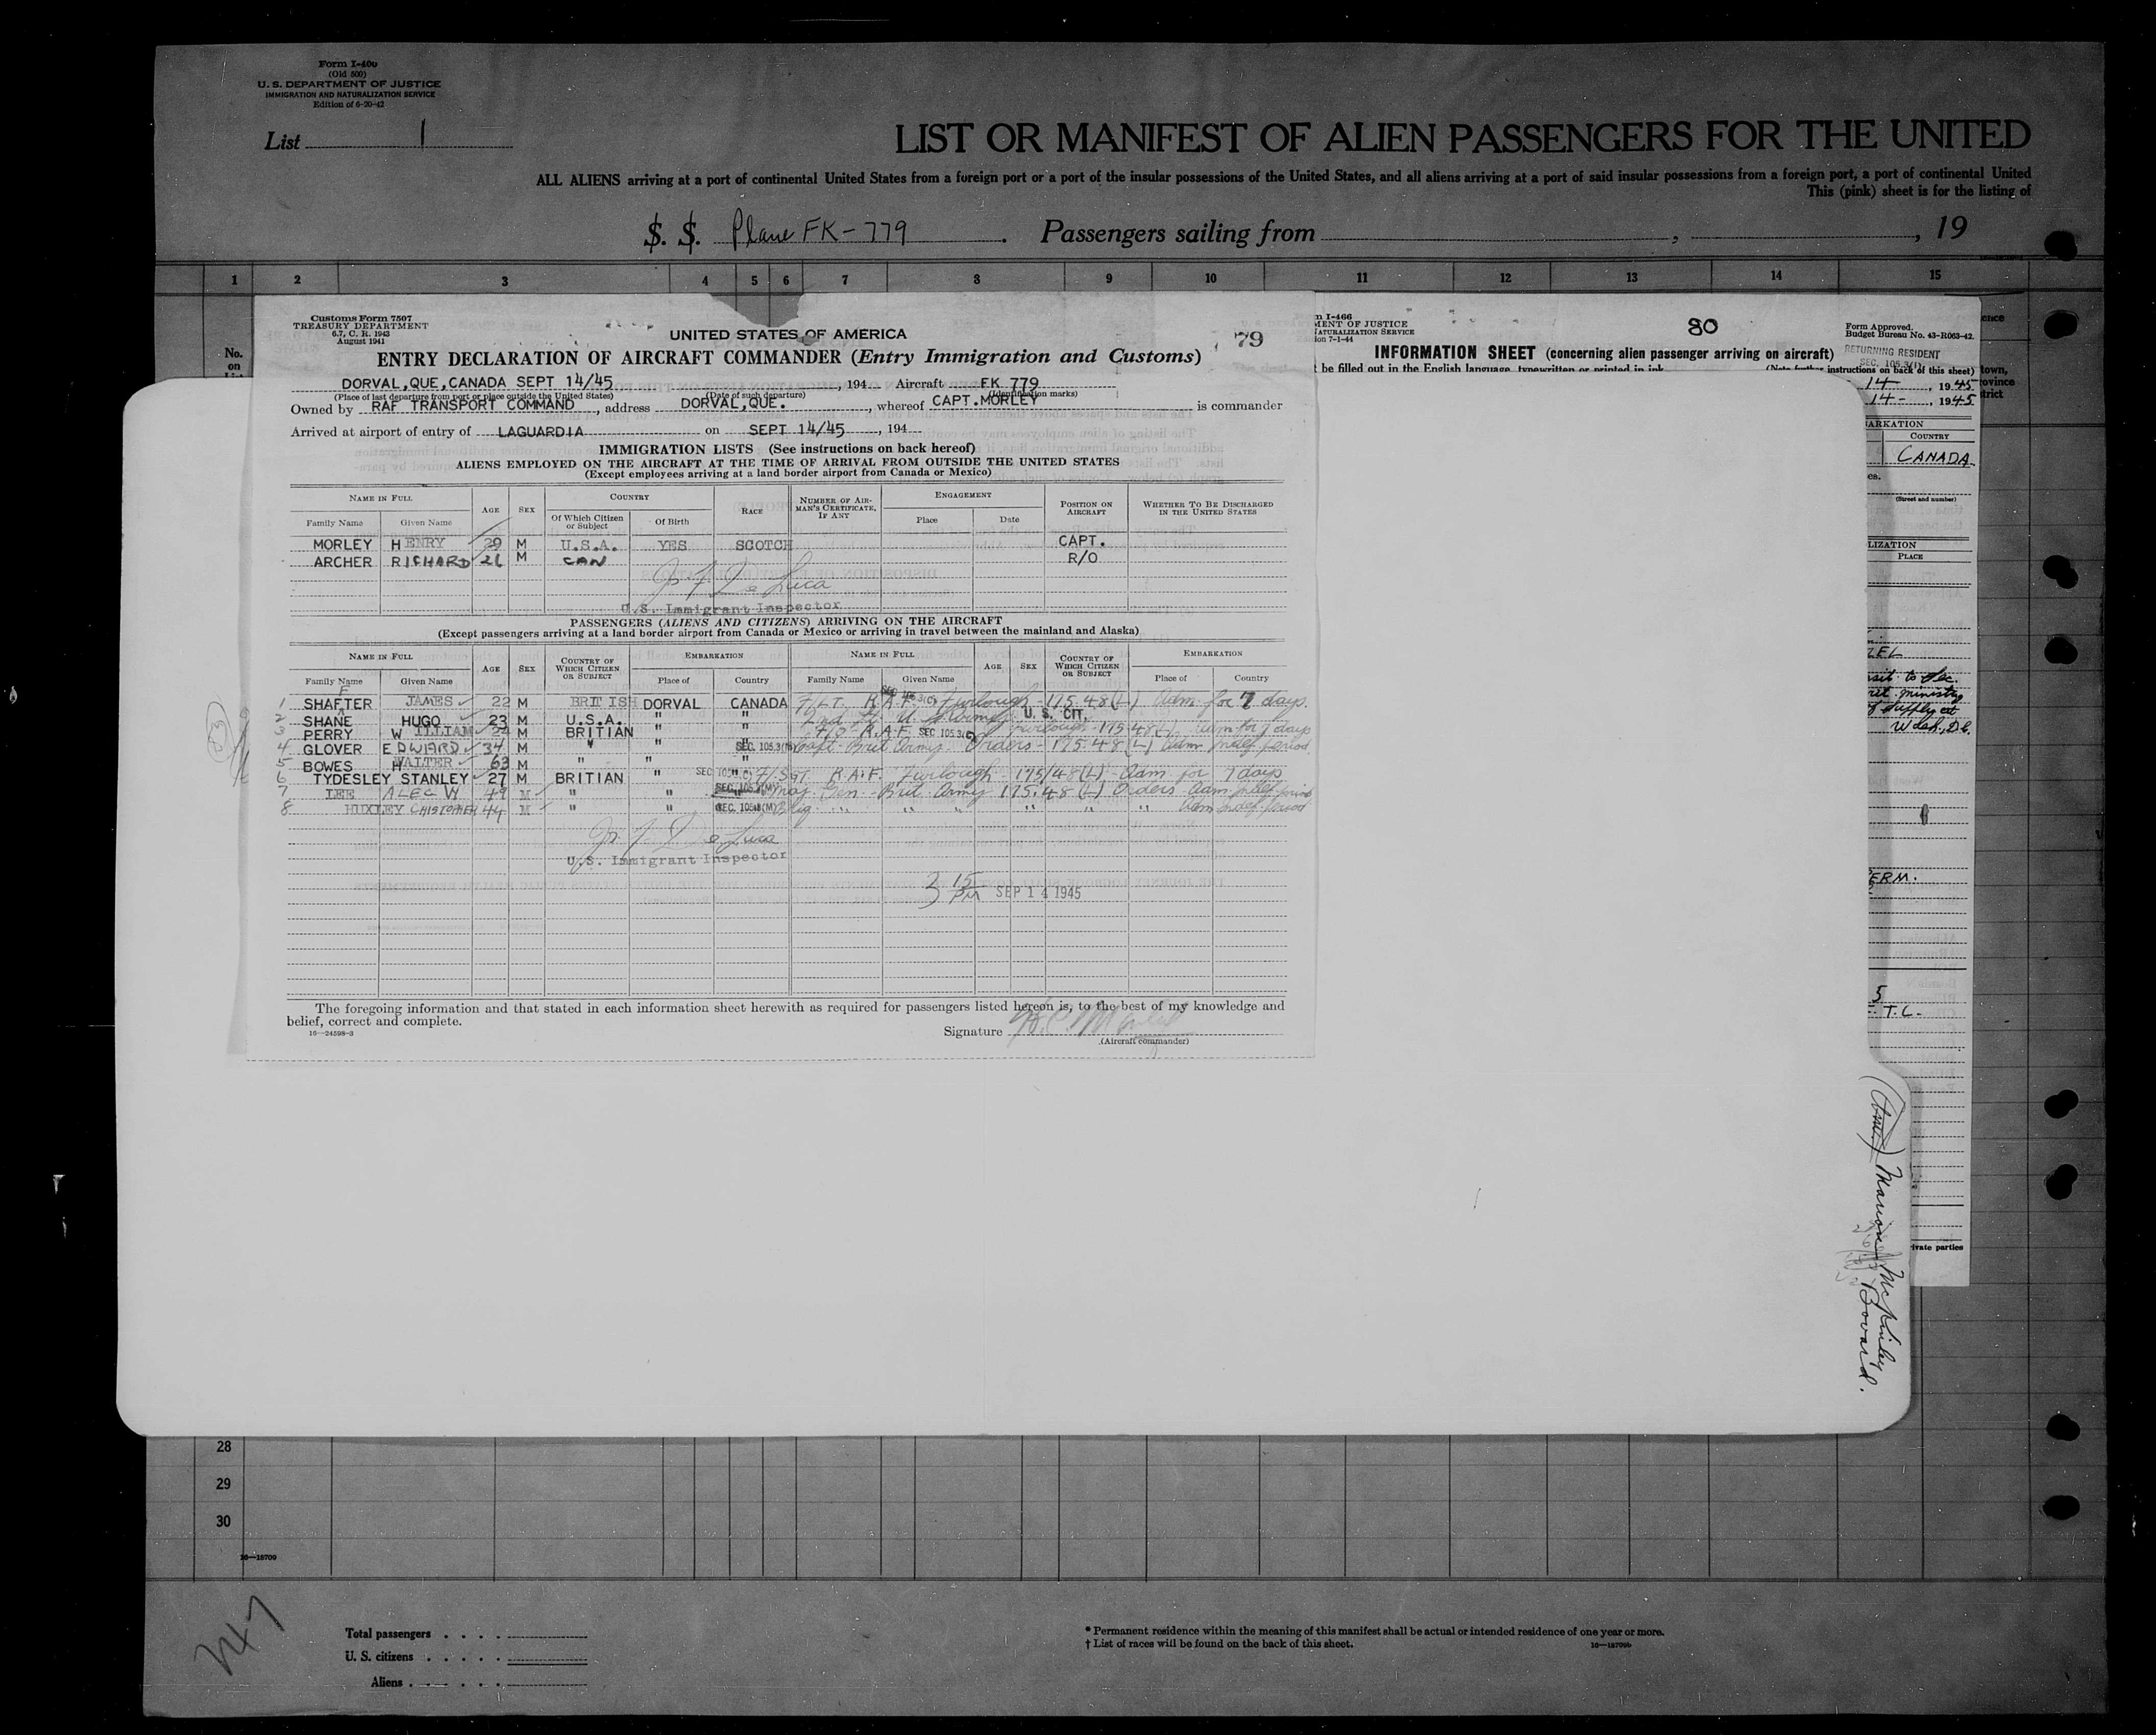 Form I-400
(Old 500)
U. S. DEPARTMENT OF JUSTICE
IMMIGRATION AND NATURALIZATION SERVICE
Edition of 6-20-42
List 1
LIST OR MANIFEST OF ALIEN PASSENGERS FOR THE UNITED
ALL ALIENS arriving at a port of continental United States from a foreign port or a port of the insular possessions of the United States, and all aliens arriving at a port of said insular possessions from a foreign port, a port of continental United
This (pink) sheet is for the listing of
S. S. Plane FK-779. Passengers sailing from , , 19
1 2 3 4 5 6 7 8 9 10 11 12 13 14 15
No.
on
Customs Form 7507
TREASURY DEPARTMENT
6.7, C. R. 1943
August 1941
UNITED STATES OF AMERICA
79
ENTRY DECLARATION OF AIRCRAFT COMMANDER (Entry Immigration and Customs)
DORVAL,QUE,CANADA SEPT 14/45, 194 Aircraft FK 779
(Place of last departure from port or place outside the United States) (Date of such departure) (Identification marks)
Owned by RAF TRANSPORT COMMAND, address DORVAL,QUE., whereof CAPT.MORLEY is commander
Arrived at airport of entry of LAGUARDIA on SEPT 14/45, 194
IMMIGRATION LISTS (See instructions on back hereof)
ALIENS EMPLOYED ON THE AIRCRAFT AT THE TIME OF ARRIVAL FROM OUTSIDE THE UNITED STATES
(Except employees arriving at a land border airport from Canada or Mexico)
NAME IN FULL AGE SEX COUNTRY RACE NUMBER OF AIRMAN'S CERTIFICATE, IF ANY ENGAGEMENT POSITION ON AIRCRAFT WHETHER TO BE DISCHARGED IN THE UNITED STATES
Family Name Given Name Of Which Citizen or Subject Of Birth Place Date
MORLEY HENRY 29 M U.S.A. YES SCOTCH CAPT.
ARCHER RICHARD 21 M CAN R/O
U.S. Immigrant Inspector
PASSENGERS (ALIENS AND CITIZENS) ARRIVING ON THE AIRCRAFT
(Except passengers arriving at a land border airport from Canada or Mexico or arriving in travel between the mainland and Alaska)
NAME IN FULL AGE SEX COUNTRY OF WHICH CITIZEN OR SUBJECT EMBARKATION NAME IN FULL AGE SEX COUNTRY OF WHICH CITIZEN OR SUBJECT EMBARKATION
Family Name Given Name Place of Country Family Name Given Name Place of Country
1 SHAFTER JAMES 22 M BRITISH DORVAL CANADA F/LT. R.A.F. Furlough - 175.48(L) Adm for 7 days.
2 SHANE HUGO 23 M U.S.A. " " 2nd Lt. U.S. Army U. S. CIT.
3 PERRY WILLIAM 24 M BRITIAN " " F/O R.A.F. SEC 105.3(C) Furlough - 175.48(L) adm for 7 days
4 GLOVER EDWIARD 34 M " " SEC. 105.3(M) Capt - Brit Army. Orders - 175.48(L) Adm indef. period.
5 BOWES HWALTER 63 M " " "
6 TYDESLEY STANLEY 27 M BRITIAN " F/Sgt. R.A.F. Furlough - 175/48(L) - Adm for 7 days
7 LEE ALEC W 49 M " " SEC. 105.3(M) Maj. Gen. - Brit Army 175.48(L) Orders Adm indef period
8 HUXLEY CHISTOPHER 44 M " " SEC. 105.3(M) Brig. " " " " " " Adm indef. period
U.S. Immigrant Inspector
3 15 PM SEP 14 1945
The foregoing information and that stated in each information sheet herewith as required for passengers listed hereon is, to the best of my knowledge and
belief, correct and complete.
16-24598-3
Signature
(Aircraft commander)
I-466
MENT OF JUSTICE
NATURALIZATION SERVICE
ion 7-1-44
80
Form Approved.
Budget Bureau No. 43-R063-42.
INFORMATION SHEET (concerning alien passenger arriving on aircraft)
RETURNING RESIDENT
SEC. 105.3(1)
be filled out in the English language, typewritten or printed in ink.
instructions on back of this sheet)
14, 1945
14-, 1945
town,
ovince
trict
ARKATION
COUNTRY
CANADA.
(Street and number)
LIZATION
PLACE
visit to Sec.
ministry
of supply at
Wash, D.C.
ERM.
5
T.C.
rivate parties
Marion McKinley
Bovard.
28
29
30
16-18709
747
Total passengers
U. S. citizens
Aliens
* Permanent residence within the meaning of this manifest shall be actual or intended residence of one year or more.
† List of races will be found on the back of this sheet.
16-18709b